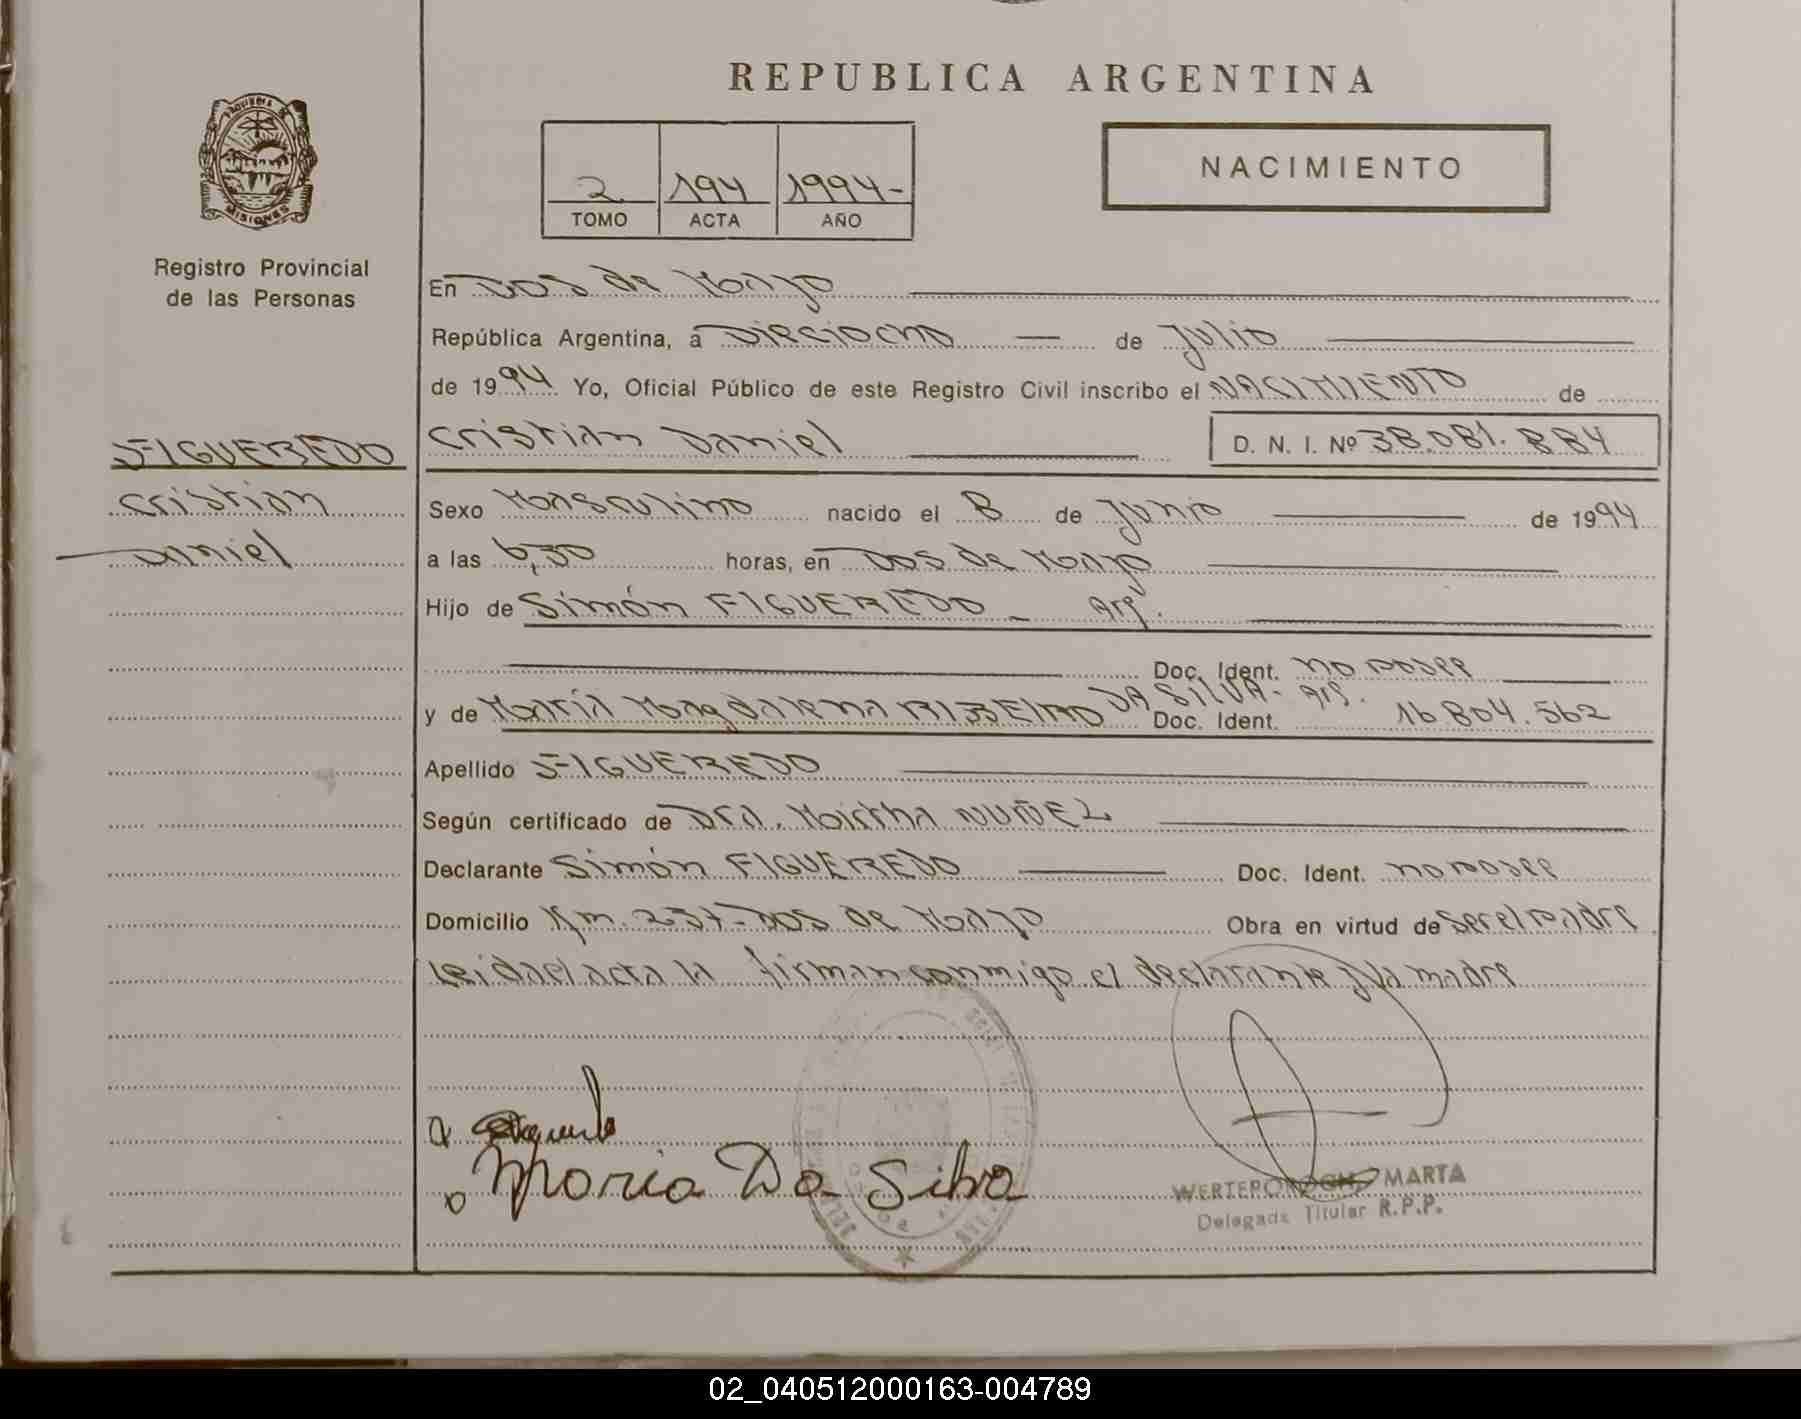 REPUBLICA ARGENTINA
MISIONES
Registro Provincial
de las Personas
2 194 1994-
TOMO ACTA AÑO
NACIMIENTO
En Dos de Mayo
República Argentina, a Dieciocho — de Julio
de 1994 Yo, Oficial Público de este Registro Civil inscribo el NACIMIENTO de
Cristian Daniel D. N. I. Nº 38.081.884
FIGUEREDO
Cristian
Daniel
Sexo Masculino nacido el 8 de Junio de 1994
a las 6,30 horas, en Dos de Mayo
Hijo de Simón FIGUEREDO - Arg.
Doc. Ident. no posee
y de María Magdalena RIBEIRO DA SILVA - Arg. Doc. Ident. 16.804.562
Apellido FIGUEREDO
Según certificado de Dra. Mirtha NUÑEZ
Declarante Simón FIGUEREDO Doc. Ident. no posee
Domicilio Km. 237 - Dos de Mayo Obra en virtud de ser el padre
Leida el acta la firman conmigo el declarante y la madre
Maria Da Silva
MARTA
Delegada Titular R.P.P.
02_040512000163-004789